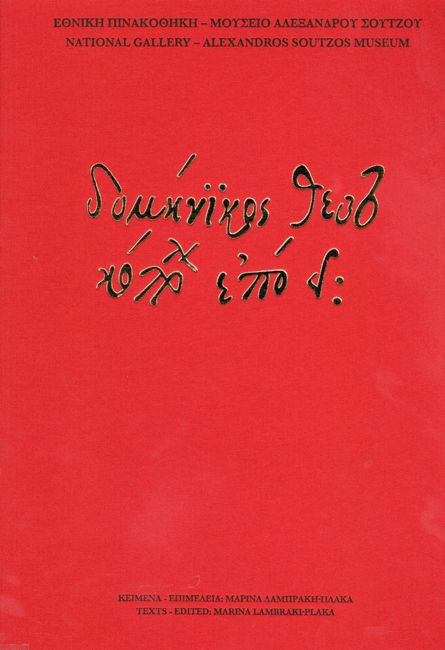 ΕΘΝΙΚΗ ΠΙΝΑΚΟΘΗΚΗ – ΜΟΥΣΕΙΟ ΑΛΕΞΑΝΔΡΟΥ ΣΟΥΤΖΟΥ
NATIONAL GALLERY – ALEXANDROS SOUTZOS MUSEUM
δομήνϊκος θεοτ
ἐπόι:
ΚΕΙΜΕΝΑ - ΕΠΙΜΕΛΕΙΑ: ΜΑΡΙΝΑ ΛΑΜΠΡΑΚΗ-ΠΛΑΚΑ
TEXTS - EDITED: MARINA LAMBRAKI-PLAKA